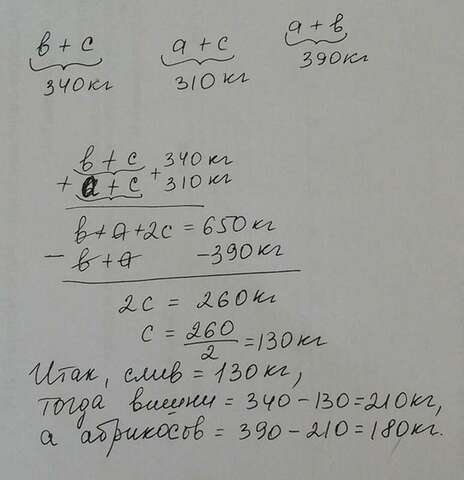 в + с a + c a + в
340кг 310кг 390кг
в + с + 340 кг
+ a + c 310 кг
в + а + 2с = 650 кг
- в + а - 390 кг
2с = 260кг
с = 260/2 = 130 кг
Итак, слив = 130 кг,
тогда вишни = 340 - 130 = 210 кг,
а абрикосов = 390 - 210 = 180 кг.